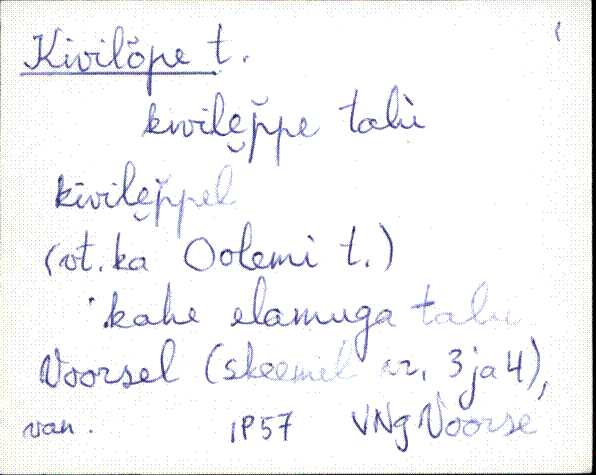 Kivilõpe t.
kivile̮ppe talù
kivile̮ppel
(vt. ka Oolemi t.)
kahe elamuga talu
Voorsel (skeemil nr. 3 ja 4),
van. 1957 VNg Voorse